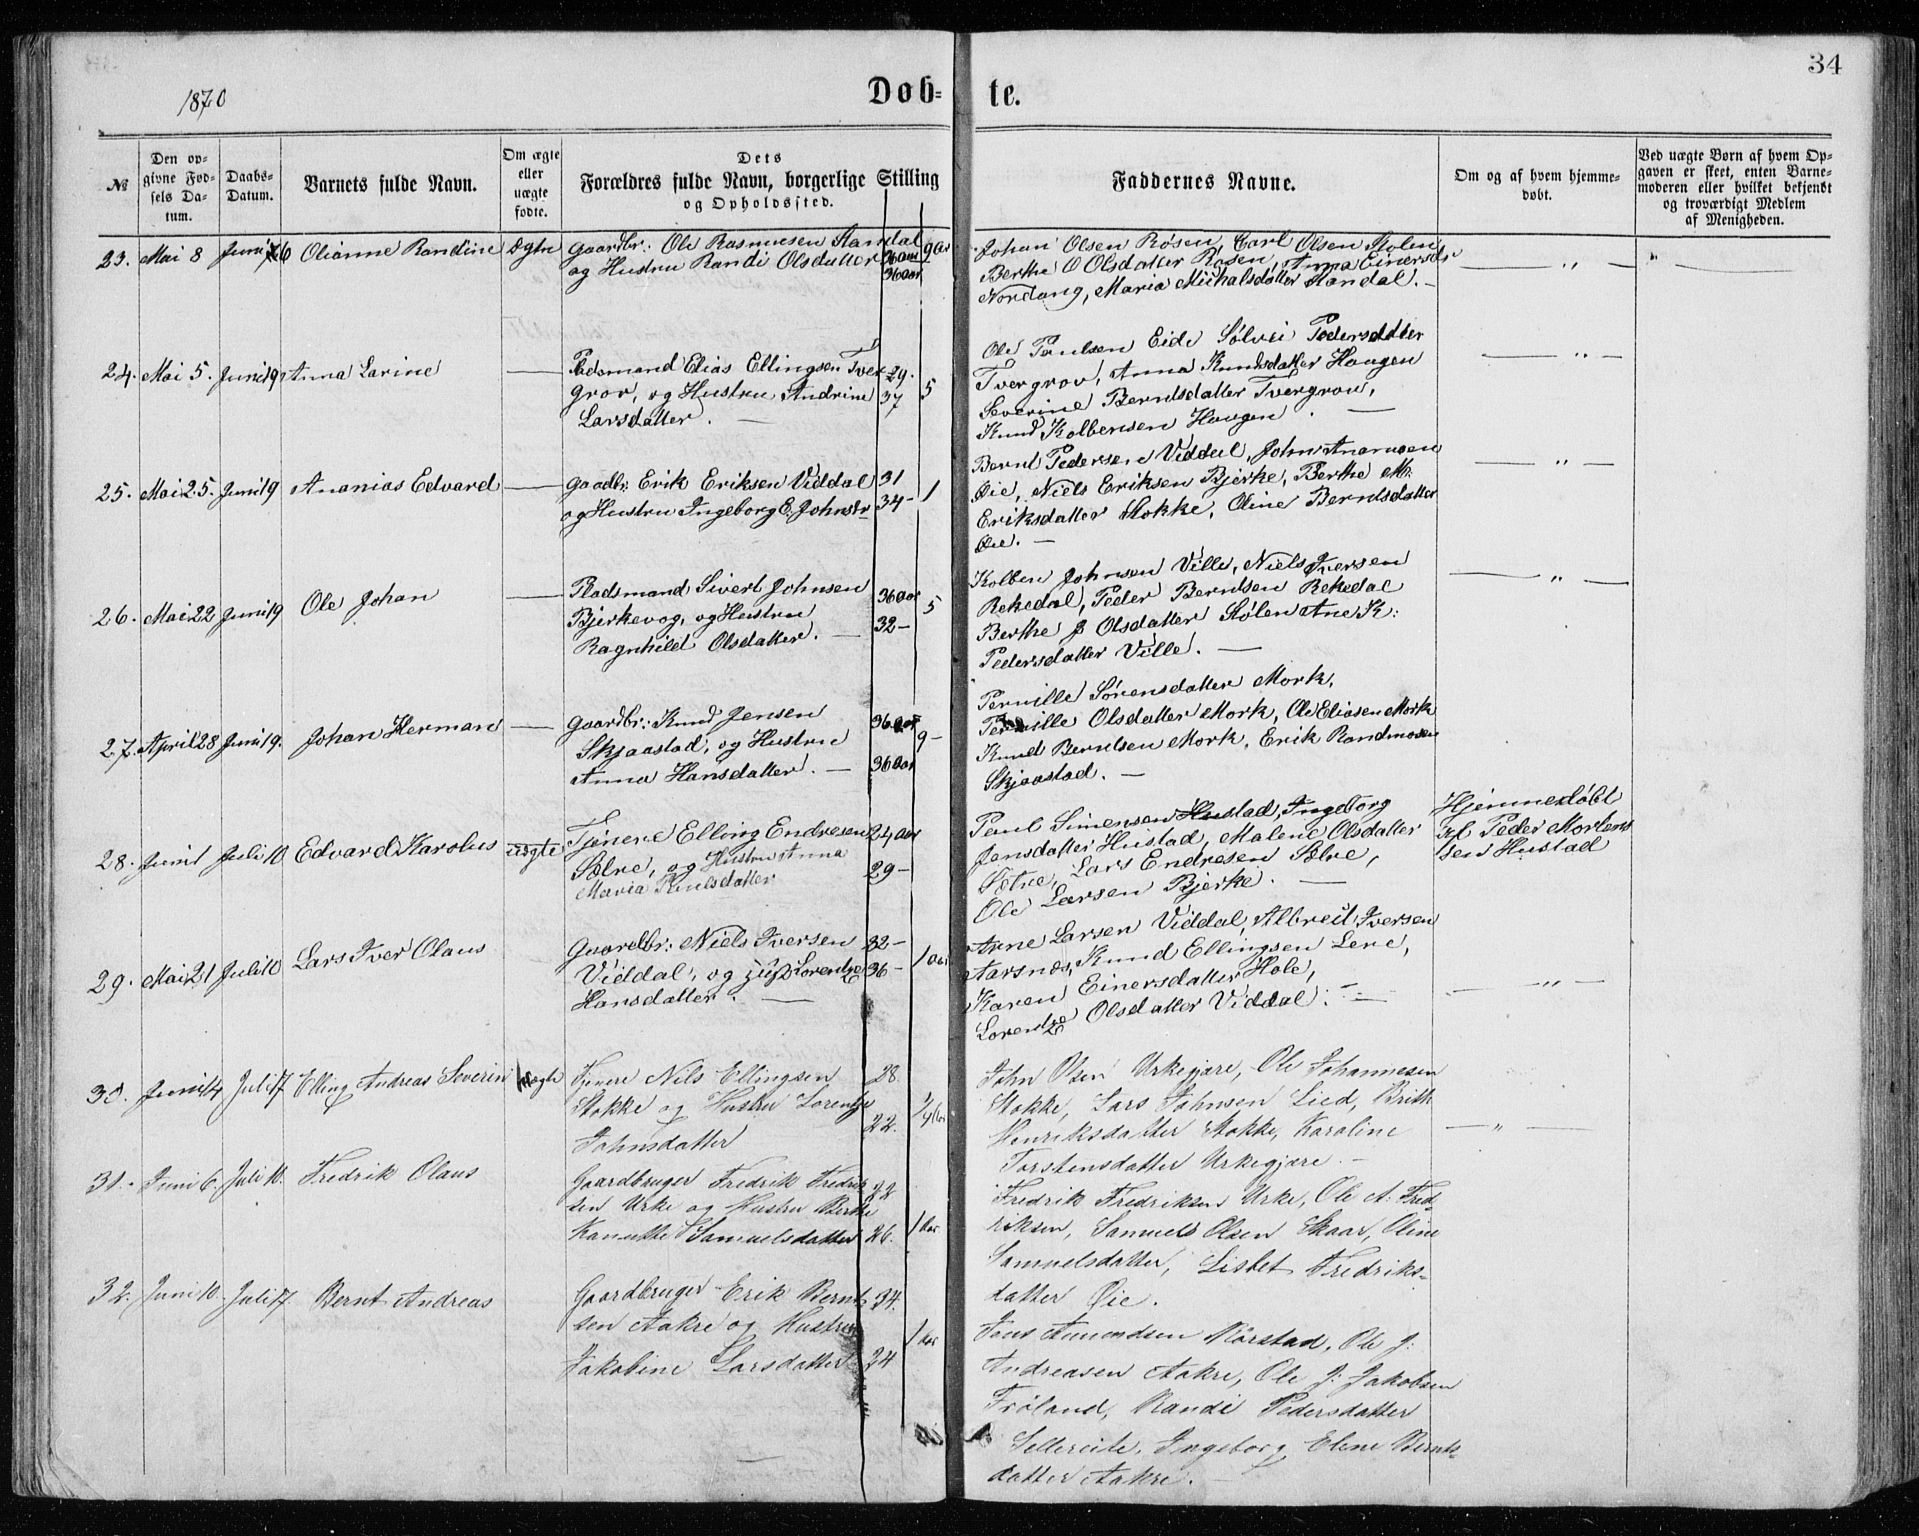 34
1870
Døb- te.
№
Den op-
givne Fød-
sels Da-
tum.
Daabs-
Datum.
Barnets fulde Navn.
Om ægte
eller
uægte
fødte.
Dets
Forældres fulde Navn, borgerlige Stilling
og Opholdssted.
Faddernes Navne.
Om og af hvem hjemme-
døbt.
Ved uægte Børn af hvem Op-
gaven er skeet, enten Barne-
moderen eller hvilket bekjendt
og troværdigt Medlem
af Menigheden.
23. Mai 8 Juni 6 Olianne Randine Ægte Gaardbr: Ole Rasmusen Standal 36 aar 9 aar
og Hustru Randi Olsdatter 36 aar
Johan Olsen Røsen, Carl Olsen Stolen
Berthe O Olsdatter Røsen, Anna Einersdr
Nordang, Maria Michalsdatter Standal. —
— " —
24. Mai 5. Juni 19 Anna Larine — Pladsmand Elias Ellingsen Tver 29. 5
grov, og Hustru Andrine 37
Larsdatter. —
Ole Paulsen Eide Sølvei Pedersdatter
Tvergrov, Anna Knudsdatter Haugen
Severine Berntsdatter Tvergrov,
Knud Kolbensen Haugen. —
— " —
25. Mai 25. Juni 19 Ananias Edvard — Gaadbr: Erik Eriksen Viddal 31 1
og Hustru Ingeborg E. Johnsdr 34 -
Bernt Pedersen Viddal, John Ananiasen
Øie, Niels Eriksen Bjerke, Berthe M:
Eriksdatter Stokke, Oline Berntsdatter
Øie. —
— " —
26. Mai 22 Juni 19 Ole Johan — Pladsmand Sivert Johnsen 36 aar 5
Bjerkevog, og Hustru 32 -
Ragnhild Olsdatter. —
Kolben Johnsen Ville, Niels Iversen
Rekedal, Peder Berntsen Rekedal
Berthe J Olsdatter Stølen Ane K:
Pedersdatter Ville. —
— " —
27. April 28 Juni 19. Johan Herman — Gaardbr: Knud Jensen 36 aar 9 -
Skjaastad, og Hustru
Anna Hansdatter. — 36 aar
Pernille Sørensdatter Mork,
Pernille Olsdatter Mork, Ole Eliasen Mork
Knud Berntsen Mork, Erik Randmosen
Skjaastad. —
28. Juni 1 Juli 10 Edvard Karolus uægte Tjenere Elling Endresen 24 aar
Sætre, og Hustru Anna
Maria Paulsdatter 29 -
Paul Simensen Hustad, Ingeborg
Jensdatter Hustad, Malene Olsdatter
Sætre, Lars Endresen Sætre,
Ole Larsen Bjerke. —
Hjemmedøbt
af Peder Morten
sen Hustad
29. Mai 21 Juli 10 Lars Iver Olaus Gaardbr: Niels Iversen 32 - 1 aar
Viddal, og Lorentze 36 -
Hansdatter. —
Arne Larsen Viddal, Albreit Iversen
Aarsnes, Knud Ellingsen Lene,
Karen Einersdatter Hole,
Lorentze Olsdatter Viddal. —
— " —
30. Juni 14 Juli 17 Elling Andreas Severin uægte Tjenere Nils Ellingsen 28.
Stokke og Hustru Lorentze 22. 1/4 aar
Johnsdatter
John Olsen Urkegjære, Ole Johannesen
Stokke, Lars Johnsen Lied, Brith
Henriksdatter Stokke, Karoline
Torstensdatter Urkegjære. -
— " —
31. Juni 6. Juli 10. Fredrik Olaus Gaardbruger Fredrik Fredrik 22
sen Urke og Hustru Berthe
Kanutte Samuelsdatter 26. 1 aar
Fredrik Fredriksen Urke, Ole A: Fred-
riksen, Samuel Olsen Skaar, Oline
Samuelsdatter, Lisbet Fredriks-
datter Øie.
32. Juni 10. Juli 17 Bernt Andreas Gaardbruger Erik Bernt 34.
sen Aakre og Hustru 1 aar
Jakobine Larsdatter 24
Jens Amundsen Rørstad, Ole J:
Andreasen Aakre, Ole J: Jakobsen
Frøland, Randi Pedersdatter
Sætereite, Ingeborg Elene Bernts-
datter Aakre. -